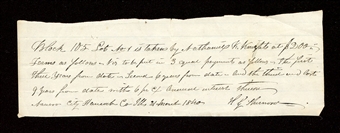 Block 105 Lot No 1 is taken by Nathaniel K. Knight at $200 –
Terms as follows – Viz to be put in 3 equal payments as follows – The first
three years from date – second 6 years from date – and the third and last
9 years from date with 6 pr ct annual interest thereon
Nauvoo City Hancock Co Ills 21